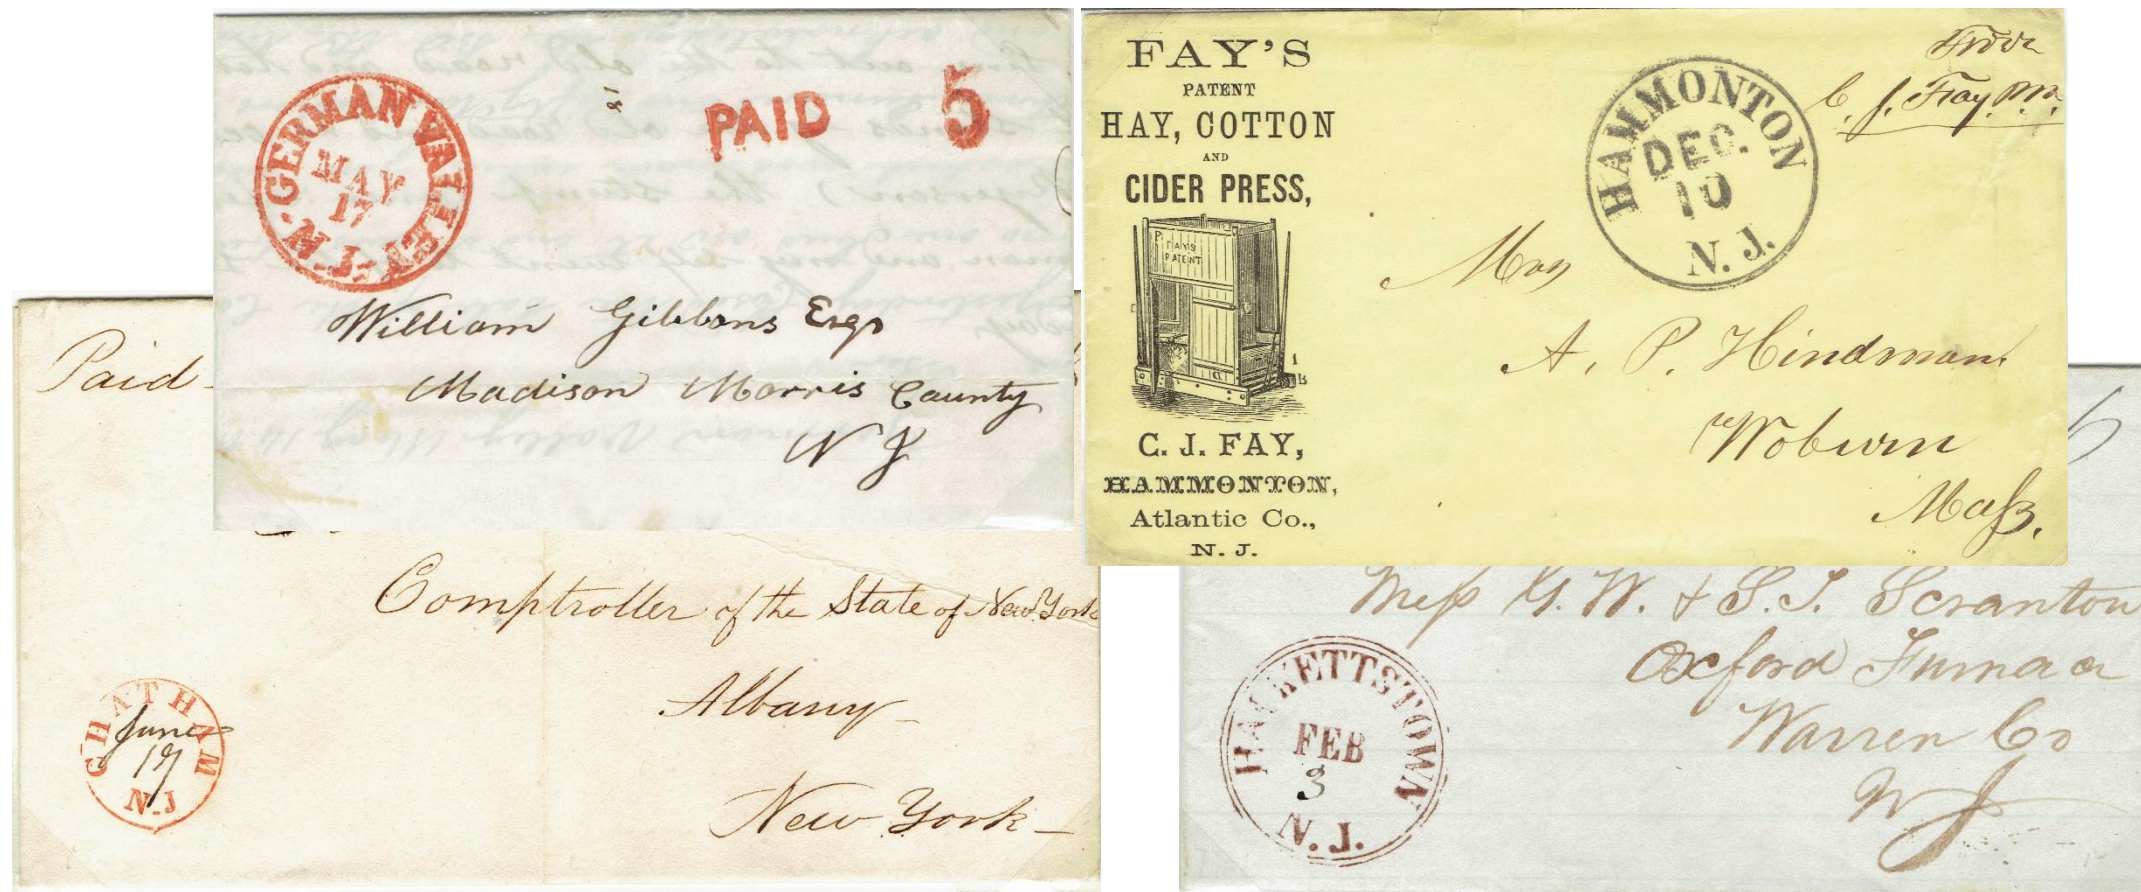 GERMAN VALLEY N.J.
MAY
17
PAID 5
William Gibbons Esqr
Madison Morris County
N J
FAY'S
PATENT
HAY, COTTON
AND
CIDER PRESS,
FAYS
PATENT
C. J. FAY,
HAMMONTON,
Atlantic Co.,
N. J.
HAMMONTON
DEC.
10
N. J.
From
C. J. Fay P.M.
A. P. Hindman
Woburn
Mass.
Paid
Comptroller of the State of New York
Albany
New York
CHATHAM
June
17
N.J
Mess G. W. & S. T. Scranton
Oxford Furnace
Warren Co
N J
HACKETTSTOWN
FEB
3
N. J.